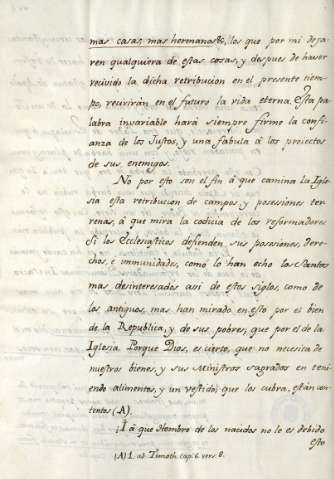 mas casas, mas hermanos &c, los que por mi deja-
ren qualquiera de estas cosas, y despues de haver
recivido la dicha retribucion en el presente tiem-
po, recivirán en el futuro la vida eterna. Esta pa-
labra invariable hará siempre firme la confi-
anza de los Justos, y una fabula á los proiectos
de sus enemigos.
No por esto son el fin á que camina la Igle-
sia esta retribucion de campos y posesiones ter-
renas, á que mira la codicia de los reformadores
Si los Eclesiasticos defienden sus posesiones, dere-
chos, é immunidades, como lo han echo los Santos
mas desinteresados asi de estos siglos, como de
los antiguos, mas han mirado en esto por el bien
de la Republica, y de sus pobres, que por el de la
Iglesia. Porque Dios, es cierto, que no necesita de
nuestros bienes, y sus Ministros sagrados en teni-
endo alimentos, y un vestido, que los cubra, están con-
tentos (A).
¡I á que Hombre de los nacidos no le es debido
esto
(A) 1. ad Timoth. cap. 6. vers. 8.